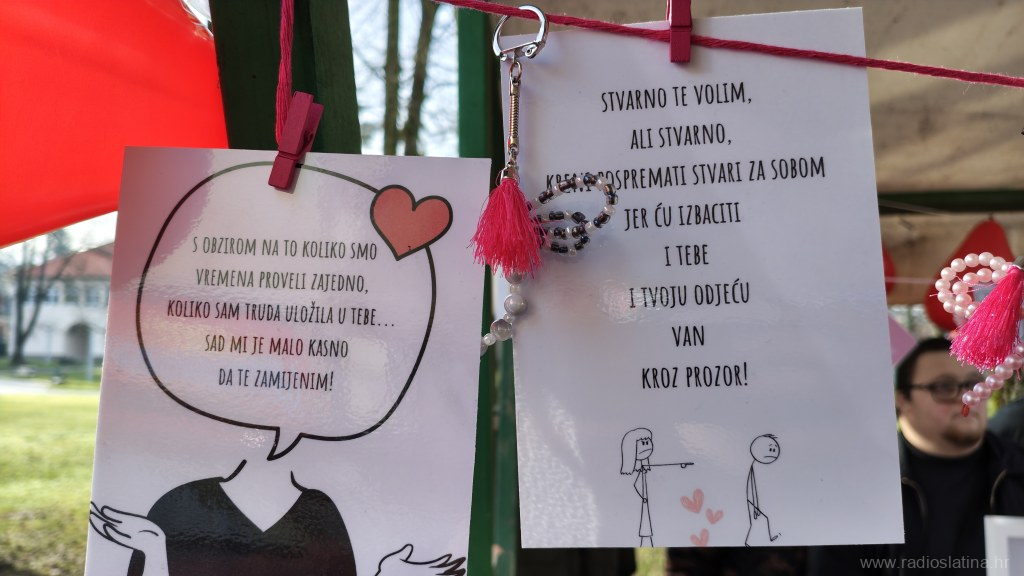 S OBZIROM NA TO KOLIKO SMO
VREMENA PROVELI ZAJEDNO,
KOLIKO SAM TRUDA ULOŽILA U TEBE...
SAD MI JE MALO KASNO
DA TE ZAMIJENIM!
STVARNO TE VOLIM,
ALI STVARNO,
POSPREMATI STVARI ZA SOBOM
JER ĆU IZBACITI
I TEBE
I TVOJU ODJEĆU
VAN
KROZ PROZOR!
www.radioslatina.hr